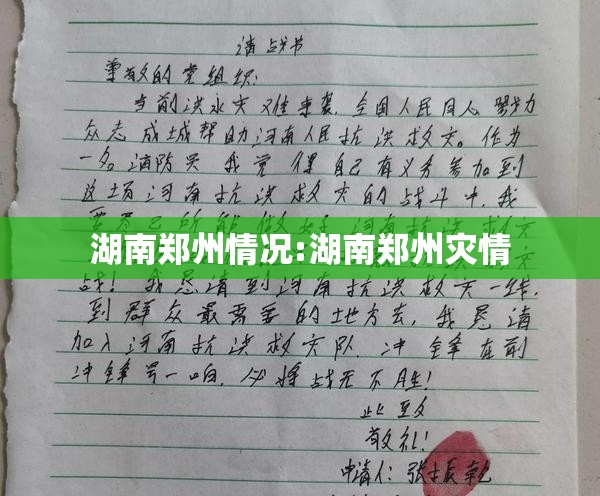 请战书
尊敬的党组织:
当前洪水灾难来袭,全国人民同心努力
众志成城帮助河南人民抗洪救灾。作为
一名消防兵我觉得自己有义务参加到
这场河南抗洪救灾的战斗中,我
湖南郑州情况:湖南郑州灾情
战!我恳请到河南抗洪救灾一线,
到群众最需要的地方去,我恳请
加入河南抗洪救灾队,冲锋在前
冲锋号一响,必将战无不胜!
此致
敬礼!
申请人:张振乾